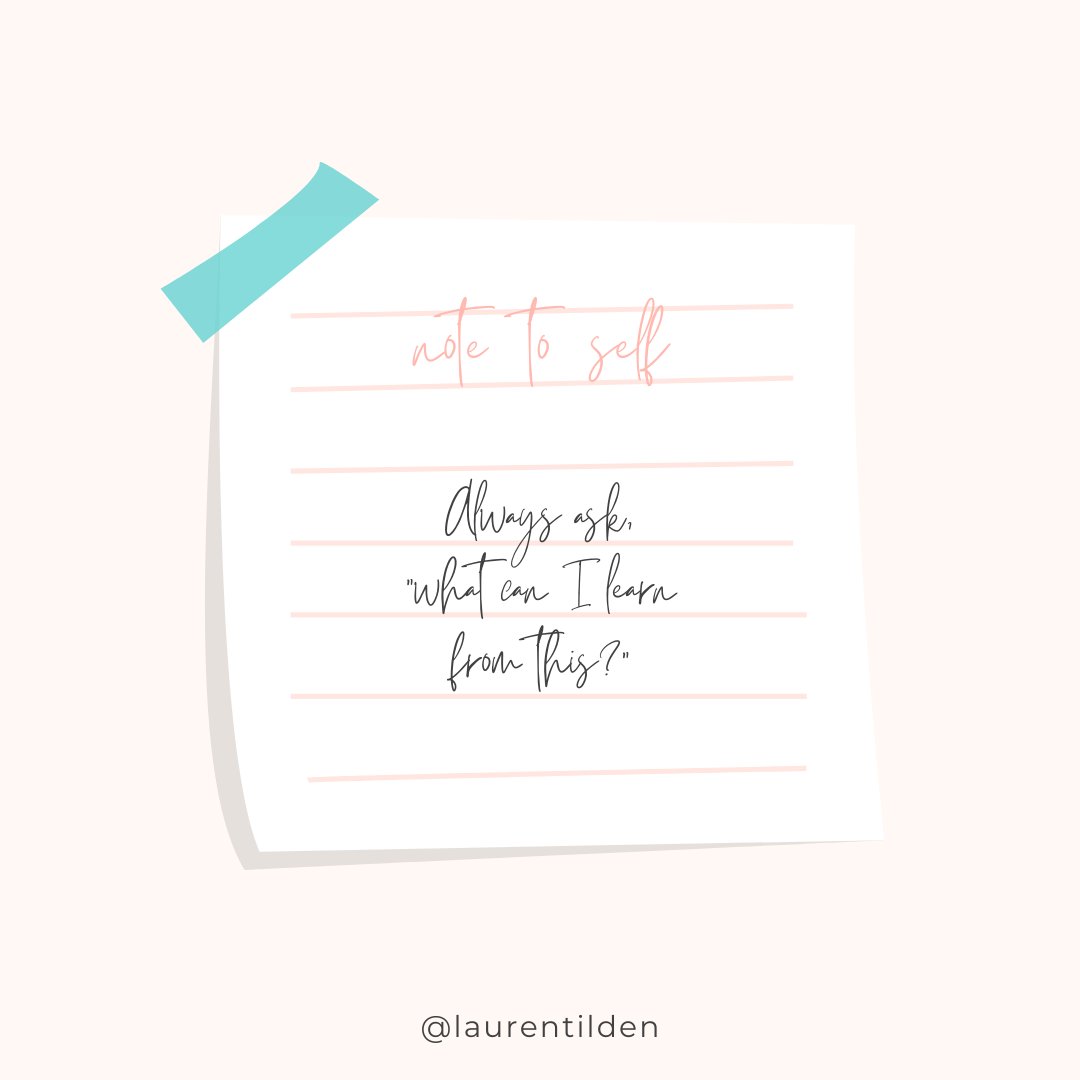 note to self
Always ask,
"what can I learn
from this?"
@laurentilden